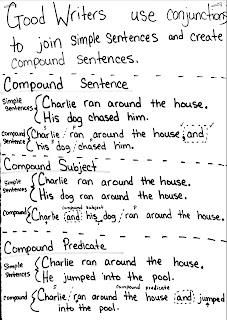 Good Writers use conjunctions
to join simple sentences and create
compound sentences.
Compound Sentence
Simple Sentences { Charlie ran around the house.
His dog chased him.
Compound Sentence { Charlie ran around the house and
his dog chased him.
Compound Subject
Simple Sentences { Charlie ran around the house.
His dog ran around the house.
compound subject P
Compound { Charlie and his dog ran around the house.
Compound Predicate
Simple Sentences { Charlie ran around the house.
He jumped into the pool.
S compound predicate
Compound { Charlie ran around the house and jumped
into the pool.